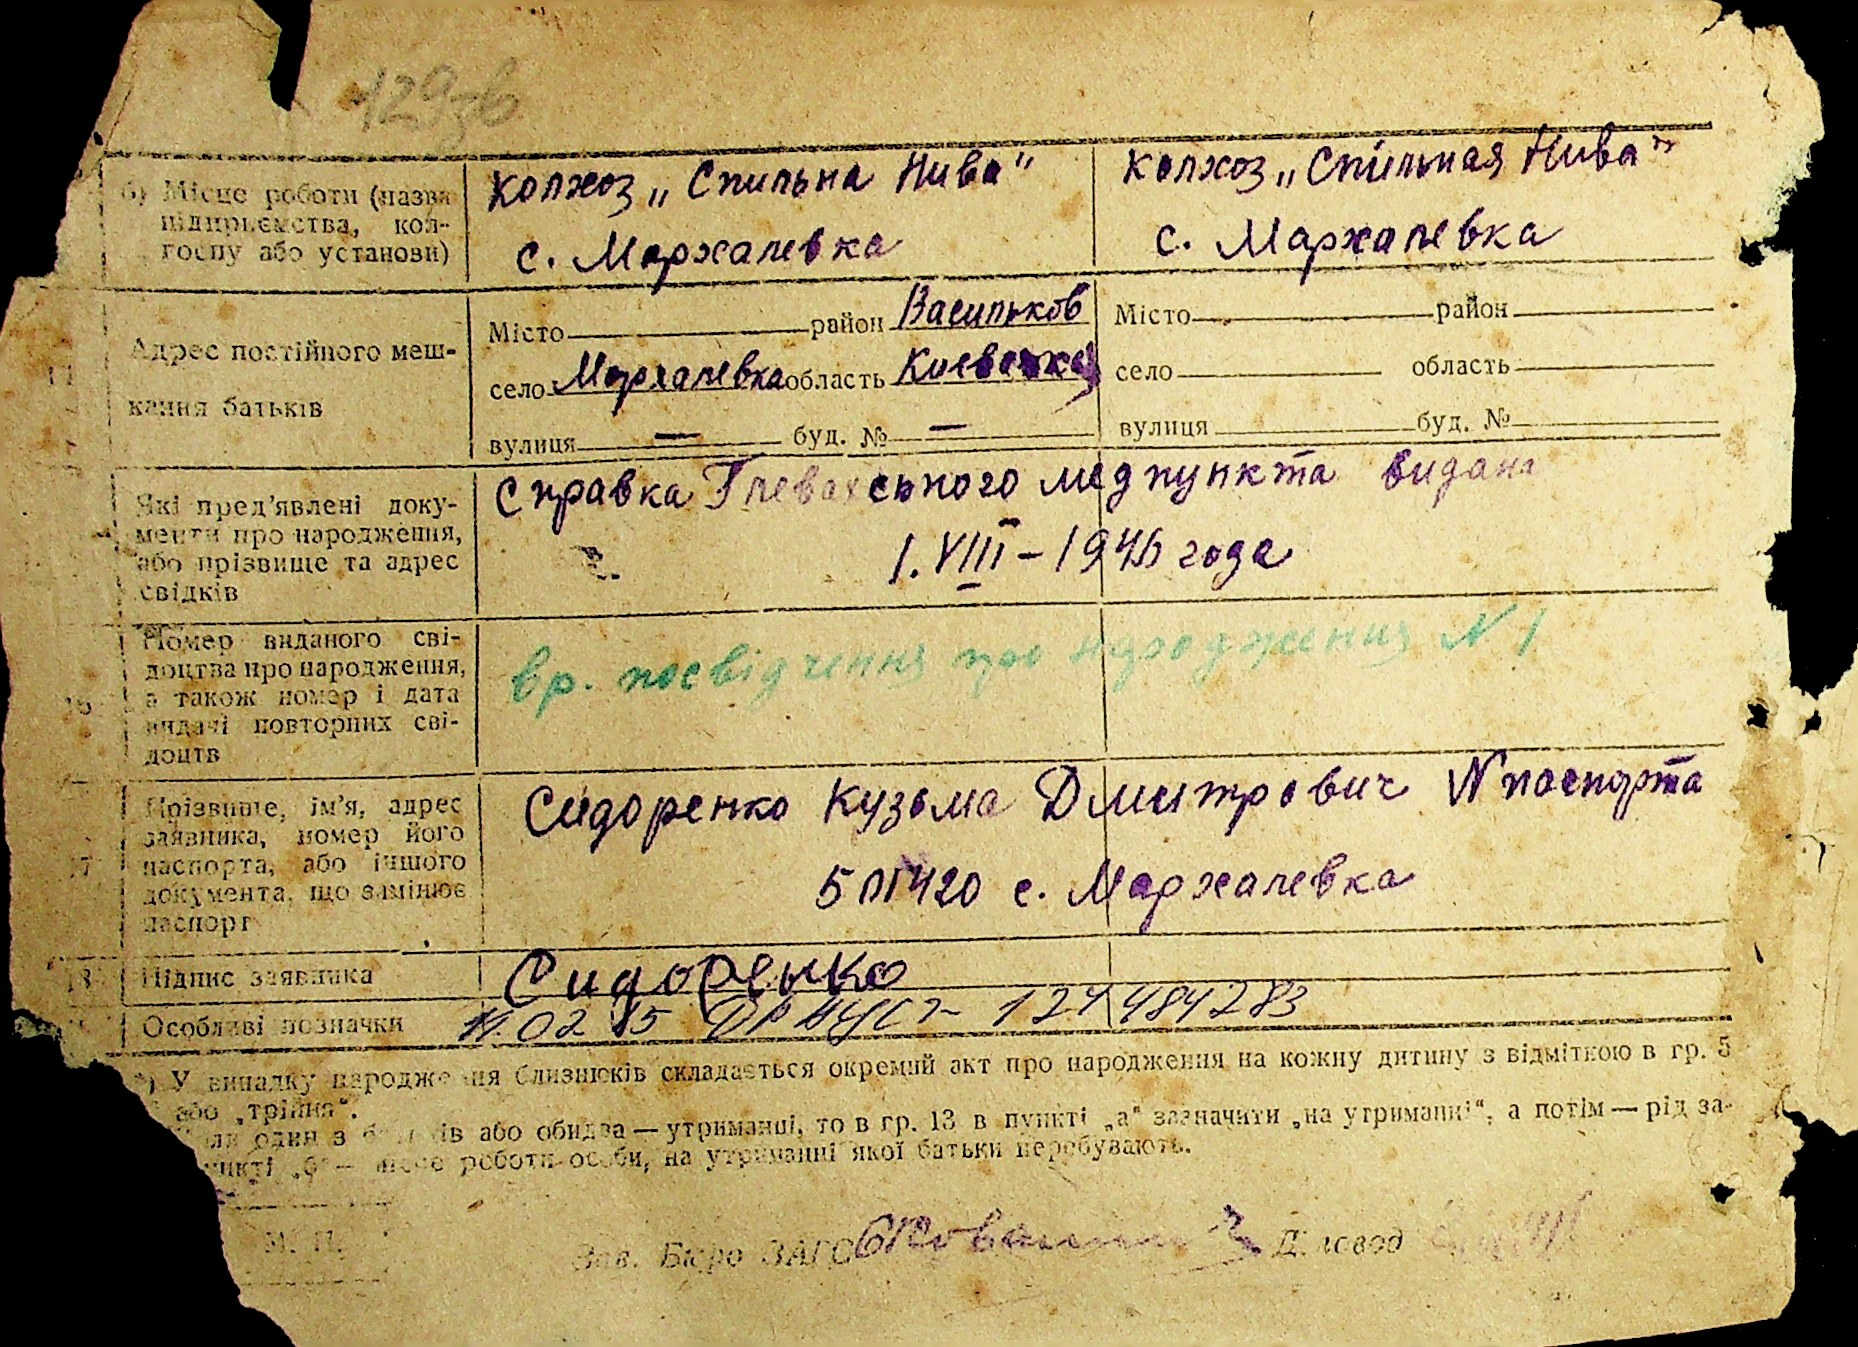 129зв
б) Місце роботи (назва
підприємства, кол-
госпу або установи)
колхоз „Спильна Нива"
с. Мархалевка
колхоз „Спильная Нива"
с. Мархалевка
14
Адрес постійного меш-
кання батьків
Місто район Васильков
село Мархалевка область Киевская
вулиця — буд. № —
Місто район
село область
вулиця буд. №
Які пред'явлені доку-
менти про народження,
або прізвище та адрес
свідків
Справка Глевахського медпункта видана
1.VIII – 1946 года
Номер виданого сві-
доцтва про народження,
а також номер і дата
видачі повторних сві-
доцтв
вр. посвідчення про народження N 1
Прізвище, ім'я, адрес
заявника, номер його
паспорта, або іншого
документа, що замінює
паспорт
Сидоренко Кузьма Дмитрович N паспорта
с. Мархалевка
18
Підпис заявника
Сидоренко
Особливі позначки
02
У випадку народження близнюків складається окремий акт про народження на кожну дитину з відміткою в гр. 5
або „трійня".
один з батьків або обидва — утриманці, то в гр. 13 в пункті „а" зазначити „на утриманні", а потім — рід за-
пункті „б" — місце роботи особи, на утриманні якої батьки перебувають.
М. П.
Зав. Бюро ЗАГС
Діловод